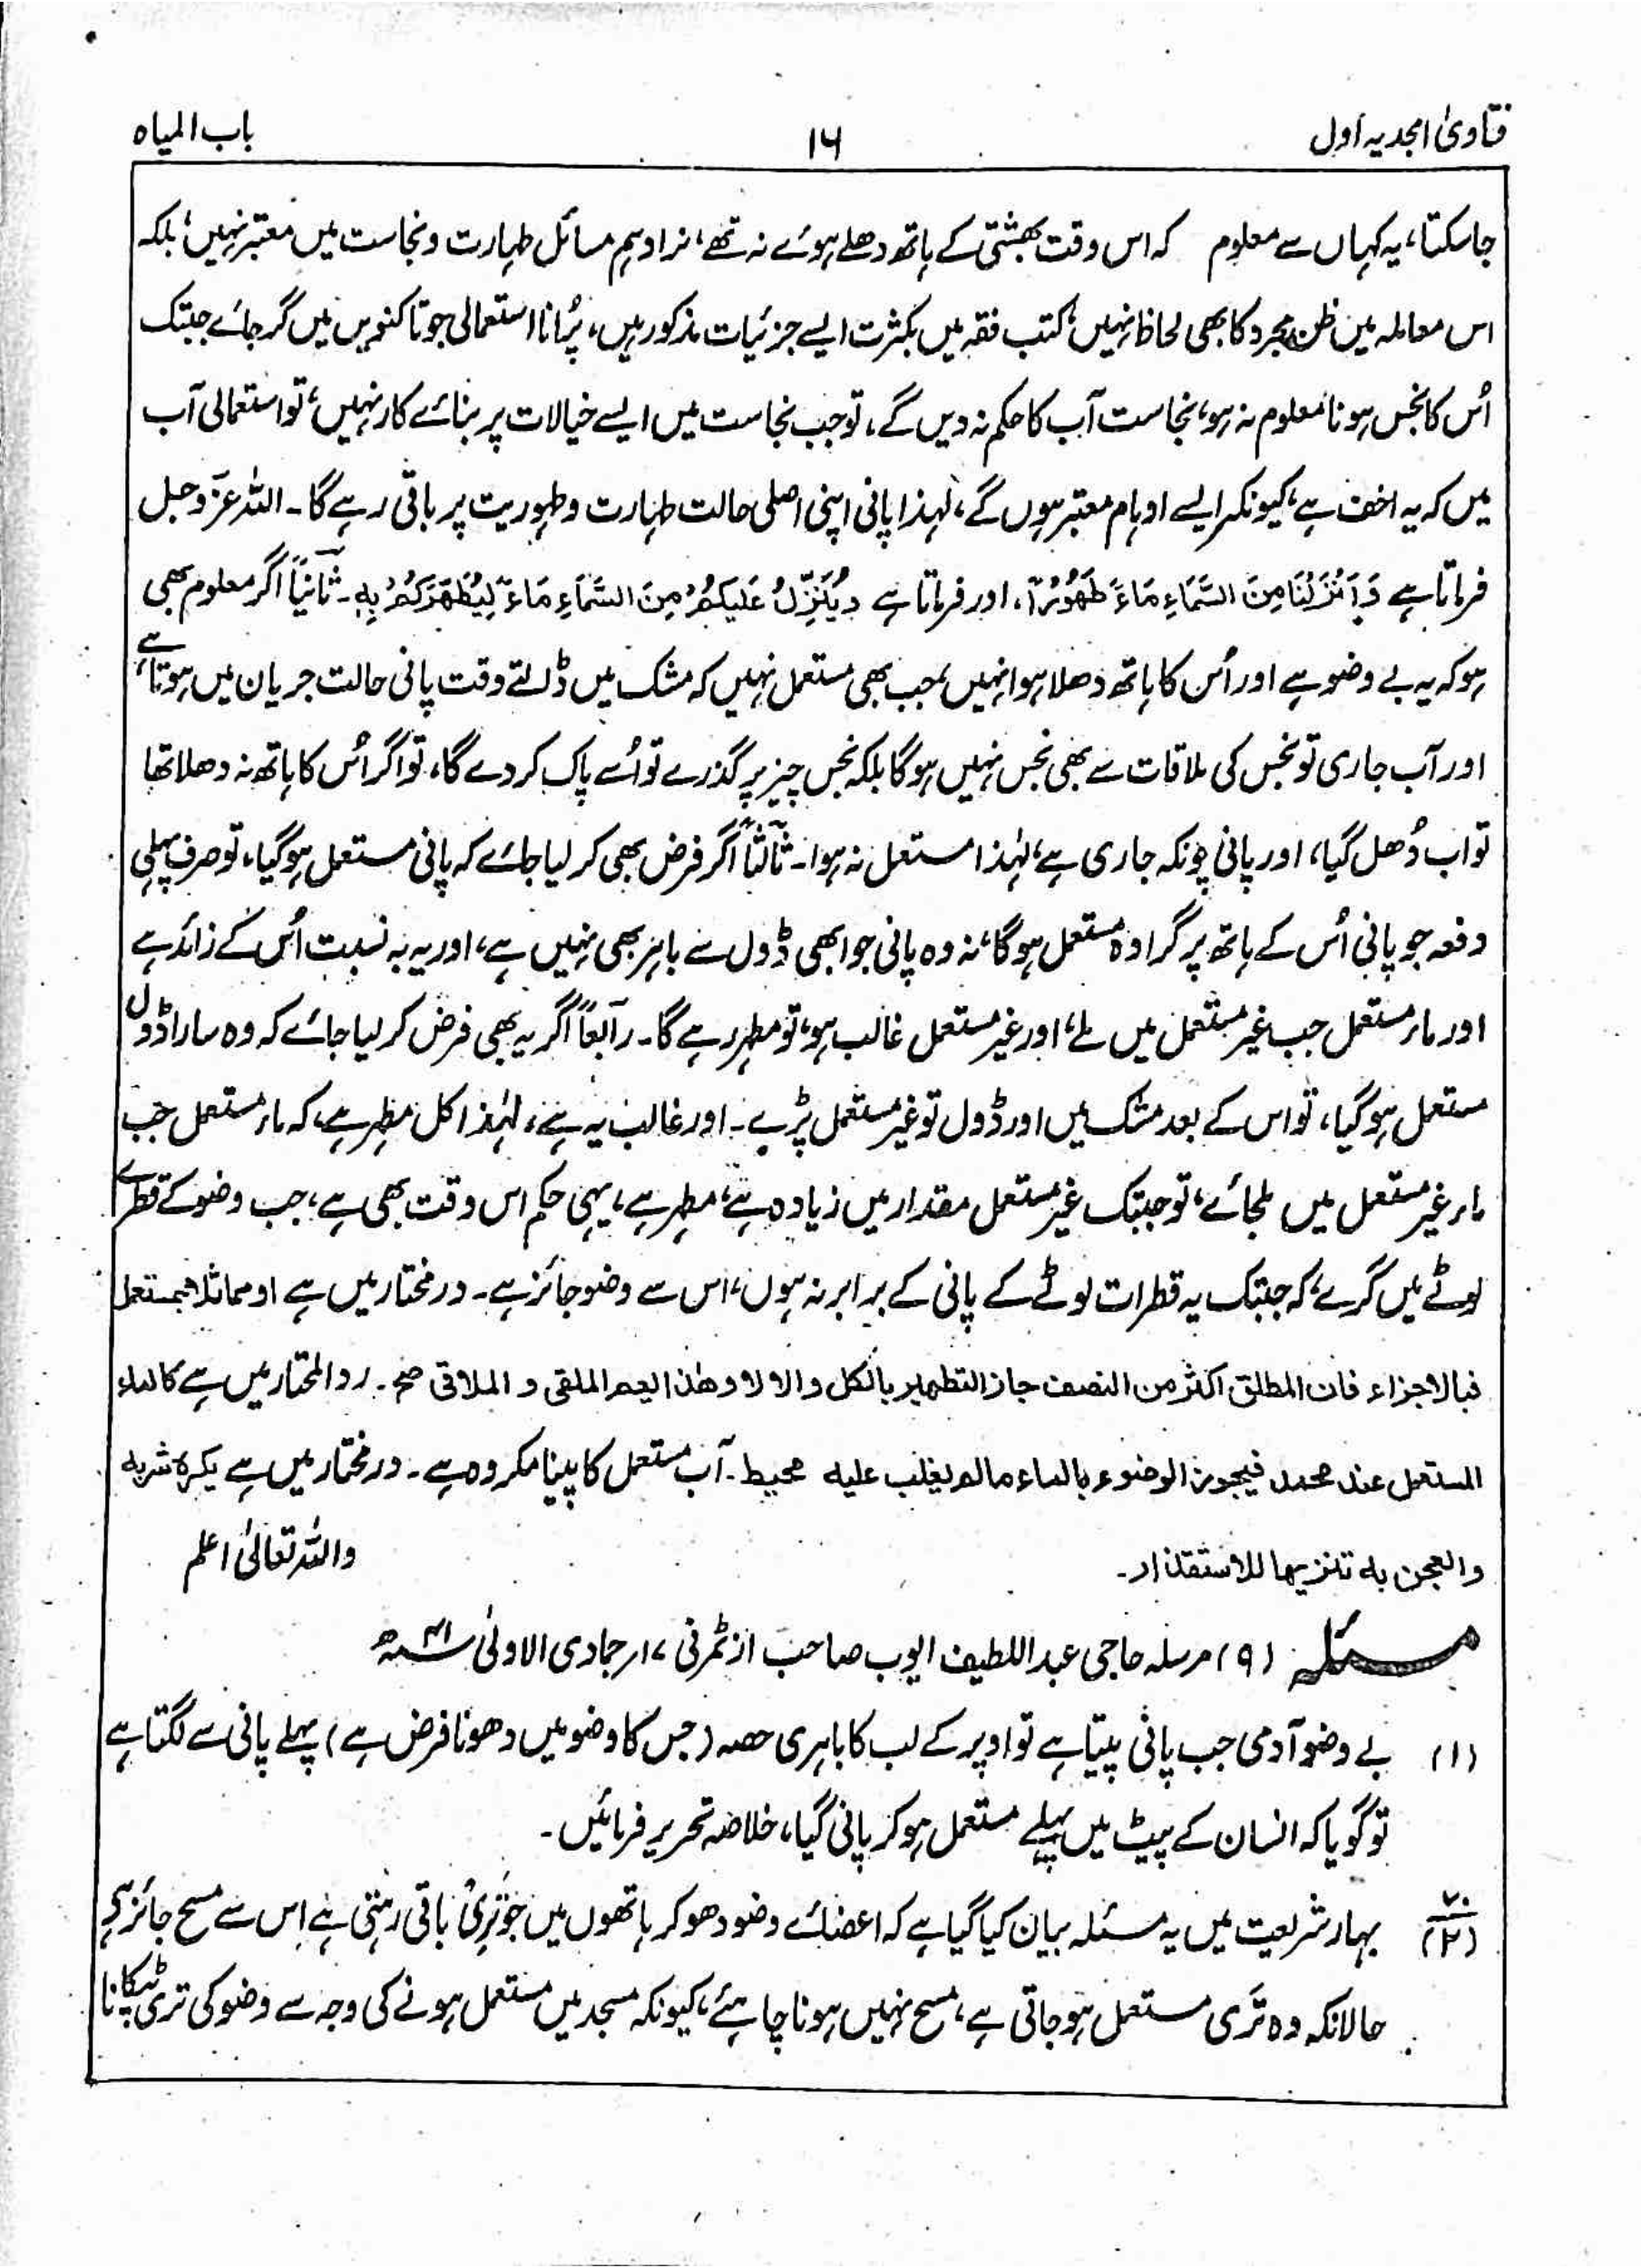 فتاویٰ امجدیہ اول
۱۶
باب المیاہ
جاسکتا، یہ کہاں سے معلوم کہ اس وقت بھشتی کے ہاتھ دھلے ہوئے نہ تھے، نرا وہم مسائل طہارت و نجاست میں معتبر نہیں، بلکہ
اس معاملہ میں ظن مجرد کا بھی لحاظ نہیں، کتب فقہ میں بکثرت ایسے جزئیات مذکور ہیں، پُرانا استعمالی جوتا کنویں میں گر جائے جبتک
اُس کا نجس ہونا معلوم نہ ہو، نجاست آب کا حکم نہ دیں گے، تو جب نجاست میں ایسے خیالات پر بنائے کار نہیں، تو استعمالی آب
میں کہ یہ اخف ہے، کیونکر ایسے اوہام معتبر ہوں گے، لہذا پانی اپنی اصلی حالت طہارت و طہوریت پر باقی رہے گا۔ اللہ عزّ وجل
فرماتا ہے وَاَنْزَلْنَا مِنَ السَّمَاءِ مَاءً طَهُوْرًا، اور فرماتا ہے وَیُنَزِّلُ عَلَیْکُمْ مِنَ السَّمَاءِ مَاءً لِیُطَهِّرَکُمْ بِهٖ۔ ثانیًا اگر معلوم بھی
ہو کہ یہ بے وضو ہے اور اُس کا ہاتھ دھلا ہوا نہیں، جب بھی مستعمل نہیں کہ مشک میں ڈالتے وقت پانی حالت جریان میں ہوتا ہے،
اور آب جاری تو نجس کی ملاقات سے بھی نجس نہیں ہوگا بلکہ نجس چیز پر گذرے تو اُسے پاک کر دے گا، تو اگر اُس کا ہاتھ نہ دھلا تھا
تو اب دُھل گیا، اور پانی چونکہ جاری ہے، لہٰذا مستعمل نہ ہوا۔ ثالثًا اگر فرض بھی کر لیا جائے کہ پانی مستعمل ہوگیا، تو صرف پہلی
دفعہ جو پانی اُس کے ہاتھ پر گرا وہ مستعمل ہوگا، نہ وہ پانی جو ابھی ڈول سے باہر بھی نہیں ہے، اور یہ بہ نسبت اُس کے زائد ہے
اور ماء مستعمل جب غیر مستعمل میں ملے، اور غیر مستعمل غالب ہو، تو مطہر رہے گا۔ رابعًا اگر یہ بھی فرض کر لیا جائے کہ وہ سارا ڈول
مستعمل ہوگیا، تو اس کے بعد مشک میں اور ڈول تو غیر مستعمل پڑے۔ اور غالب یہ ہے، لہٰذا کل مطہر ہے، کہ ماء مستعمل جب
ماء غیر مستعمل میں ملجائے، تو جبتک غیر مستعمل مقدار میں زیادہ ہے، مطہر ہے، یہی حکم اس وقت بھی ہے، جب وضو کے قطرے
لوٹے میں گرے، کہ جبتک یہ قطرات لوٹے کے پانی کے برابر نہ ہوں، اس سے وضو جائز ہے۔ در مختار میں ہے او مماثلا کمستعمل
فبالاجزاء فان المطلق اکثر من النصف جاز التطهیر بالکل والا لا وهذا یعم الملقی و الملاقی صح۔ رد المحتار میں ہے کالماء
المستعمل عند محمد فیجوز الوضوء بالماء مالم یغلب علیه محیط۔ آب مستعمل کا پینا مکروہ ہے۔ در مختار میں ہے یکرہ شربه
والعجن به تنزیها للاستقذار۔ واللہ تعالیٰ اعلم
مسئلہ (۹) مرسلہ حاجی عبد اللطیف ایوب صاحب از ٹمرنی ۱۷ جمادی الاولیٰ ۴۱ھ
(۱) بے وضو آدمی جب پانی پیتا ہے تو اوپر کے لب کا باہری حصہ (جس کا وضو میں دھونا فرض ہے) پہلے پانی سے لگتا ہے
تو گویا کہ انسان کے پیٹ میں پہلے مستعمل ہو کر پانی گیا، خلاصہ تحریر فرمائیں۔
(۲) بہار شریعت میں یہ مسئلہ بیان کیا گیا ہے کہ اعضائے وضو دھو کر ہاتھوں میں جو تَرِی باقی رہتی ہے اِس سے مسح جائز ہے
حالانکہ وہ تَری مستعمل ہو جاتی ہے، مسح نہیں ہونا چاہئے، کیونکہ مسجد میں مستعمل ہونے کی وجہ سے وضو کی تری ٹپکانا